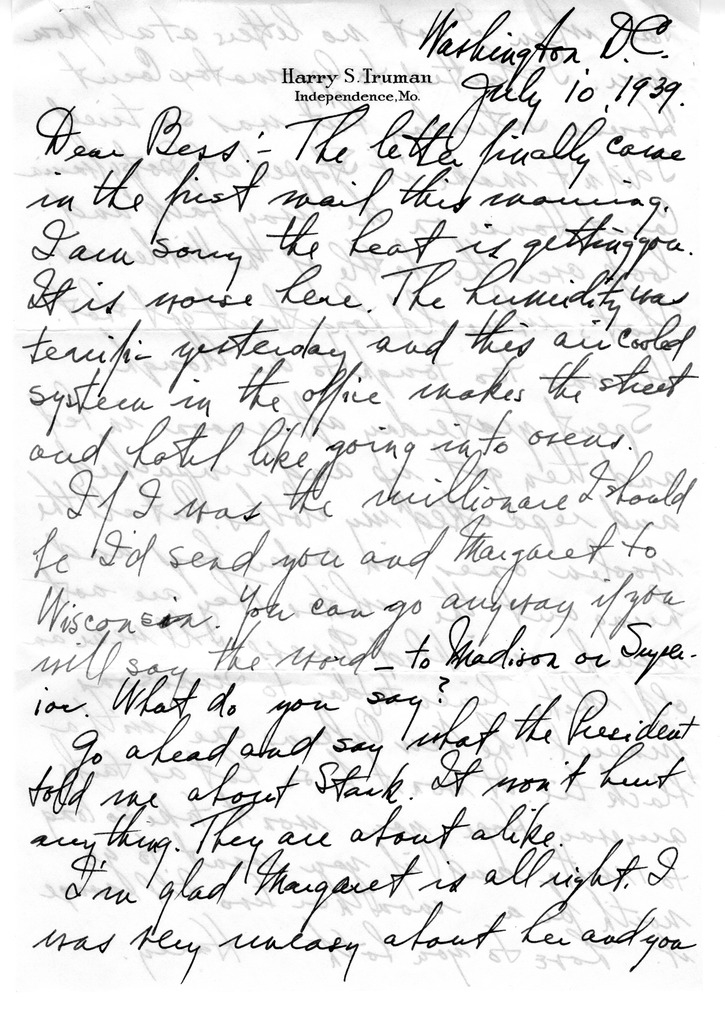 Washington D.C.
Harry S. Truman
Independence, Mo.
July 10, 1939.
Dear Bess:- The letter finally came
in the first mail this morning.
I am sorry the heat is getting you.
It is worse here. The humidity was
terrific yesterday and this air cooled
system in the office makes the street
and hotel like going into ovens.
If I was the millionare I should
be I'd send you and Margaret to
Wisconsin. You can go anyway if you
will say the word - to Madison or Super-
ior. What do you say?
Go ahead and say what the President
told me about Stark. It won't hurt
anything. They are about alike.
I'm glad Margaret is all right. I
was very uneasy about her and you